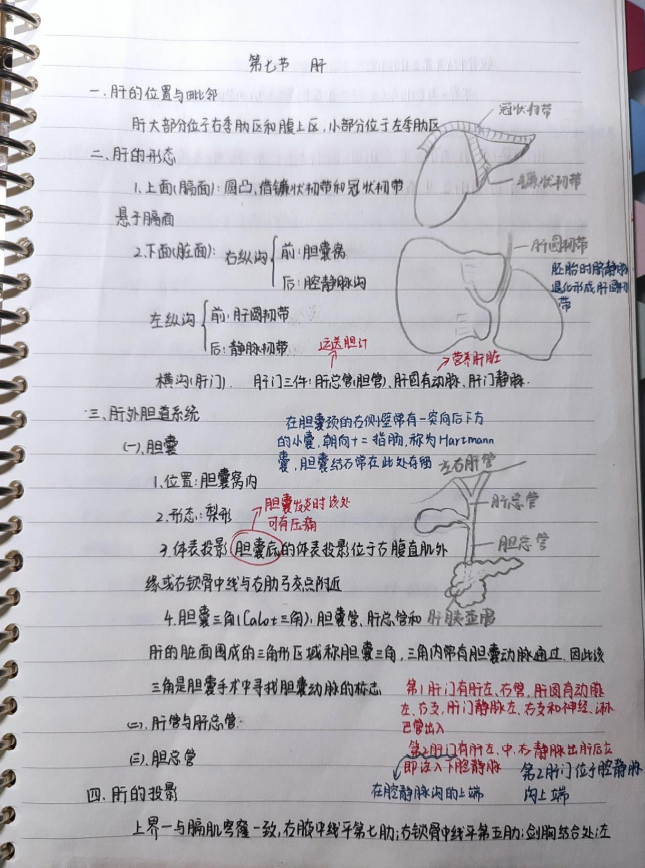 第七节 肝
一.肝的位置与毗邻
肝大部分位于右季肋区和腹上区,小部分位于左季肋区
冠状韧带
二.肝的形态
1.上面(膈面):圆凸,借镰状韧带和冠状韧带
镰状韧带
悬于膈面
2.下面(脏面):右纵沟
前:胆囊窝
后:腔静脉沟
肝圆韧带
胚胎时脐静脉
退化形成肝圆韧
带
左纵沟
前:肝圆韧带
后:静脉韧带
运送胆汁
营养肝脏
横沟(肝门). 肝门三件:肝总管(胆管)、肝固有动脉、肝门静脉.
三.肝外胆道系统
在胆囊颈的右侧壁常有一突向后下方
(一).胆囊
的小囊,朝向十二指肠,称为Hartmann
囊,胆囊结石常在此处存留
左右肝管
1.位置:胆囊窝内
胆囊发炎时该处
可有压痛
肝总管
2.形态:梨形
3.体表投影:胆囊底的体表投影位于右腹直肌外
胆总管
缘或右锁骨中线与右肋弓交点附近
4.胆囊三角(Calot三角):胆囊管、肝总管和
肝胰壶腹
肝的脏面围成的三角形区域称胆囊三角,三角内常有胆囊动脉通过.因此该
三角是胆囊手术中寻找胆囊动脉的标志
第1肝门有肝左、右管,肝固有动脉
左、右支,肝门静脉左、右支和神经、淋
巴管出入
(二).肝管与肝总管.
(三).胆总管
第2肝门有肝左、中、右静脉出肝后立
即注入下腔静脉
第2肝门位于腔静脉
沟上端
四.肝的投影
在腔静脉沟的上端
上界一与膈肌穹窿一致,右腋中线平第七肋;右锁骨中线平第五肋;剑胸结合处;左